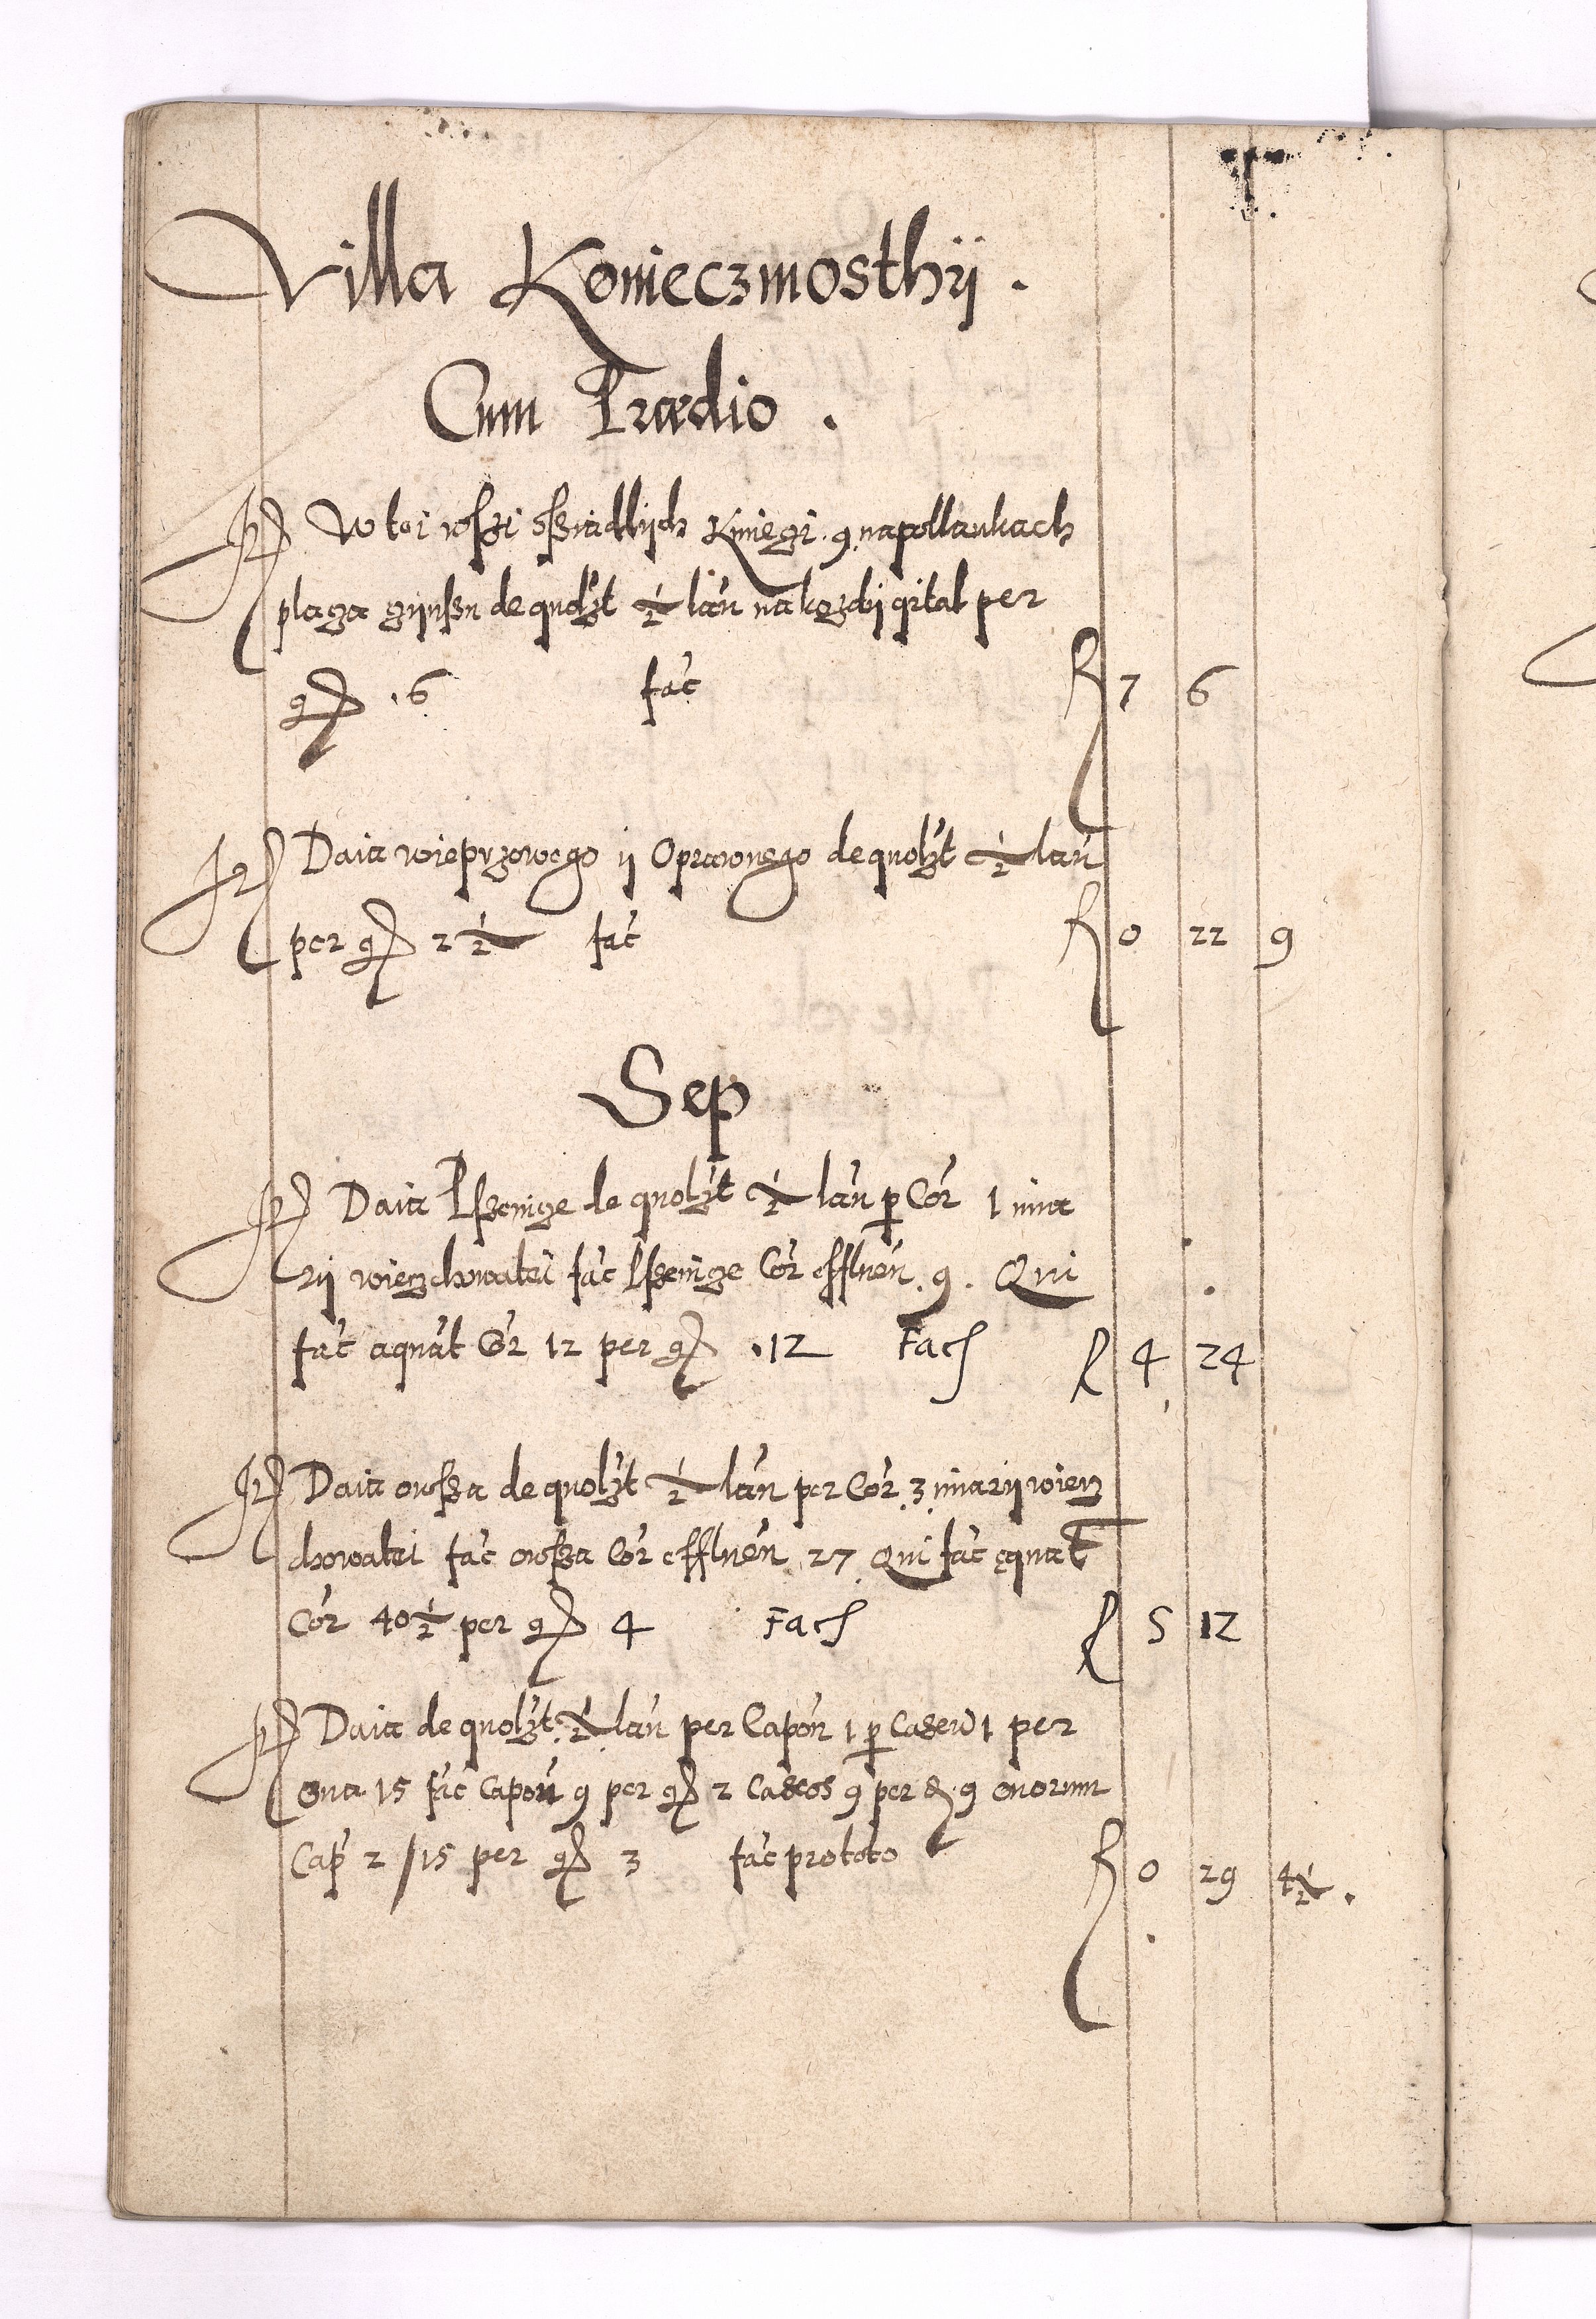 Villa Konieczmosthÿ .
Cum Prædio .
It W tei wsżi osżiadlÿch Kmiegi . 9 . na pollankach
placza czÿnssu de quolżt ½ lań na kożdÿ qrtal per
gr . 6 fać R 7 6
It Daia wieprzowego ÿ Oprawnego de quolżt ½ lań
per gr 2 ½ fać R 0 22 9
Sep
It Daia Psżenicze de quolżt ½ lań p Cór 1 mia
rÿ wierzchowatei fać Psżenicze Cór effluén . 9 . Qui
fać aquát Cór 12 per gr . 12 Fac R 4 24
It Daia owsża de quolżt ½ lań per Cór 3 miarÿ wierz
chowatei fać owsża Cór effluén 27 Qui fać ęquat
Cór 40 ½ per gr 4 Fac R 5 12
It Daia de quolżt ½ lań per Capón 1 p Caseu 1 per
oua 15 fać Capoń 9 per gr 2 Caseos 9 per d . 9 ouorum
Cap 2 / 15 per gr 3 fać pro toto R 0 29 4½ .